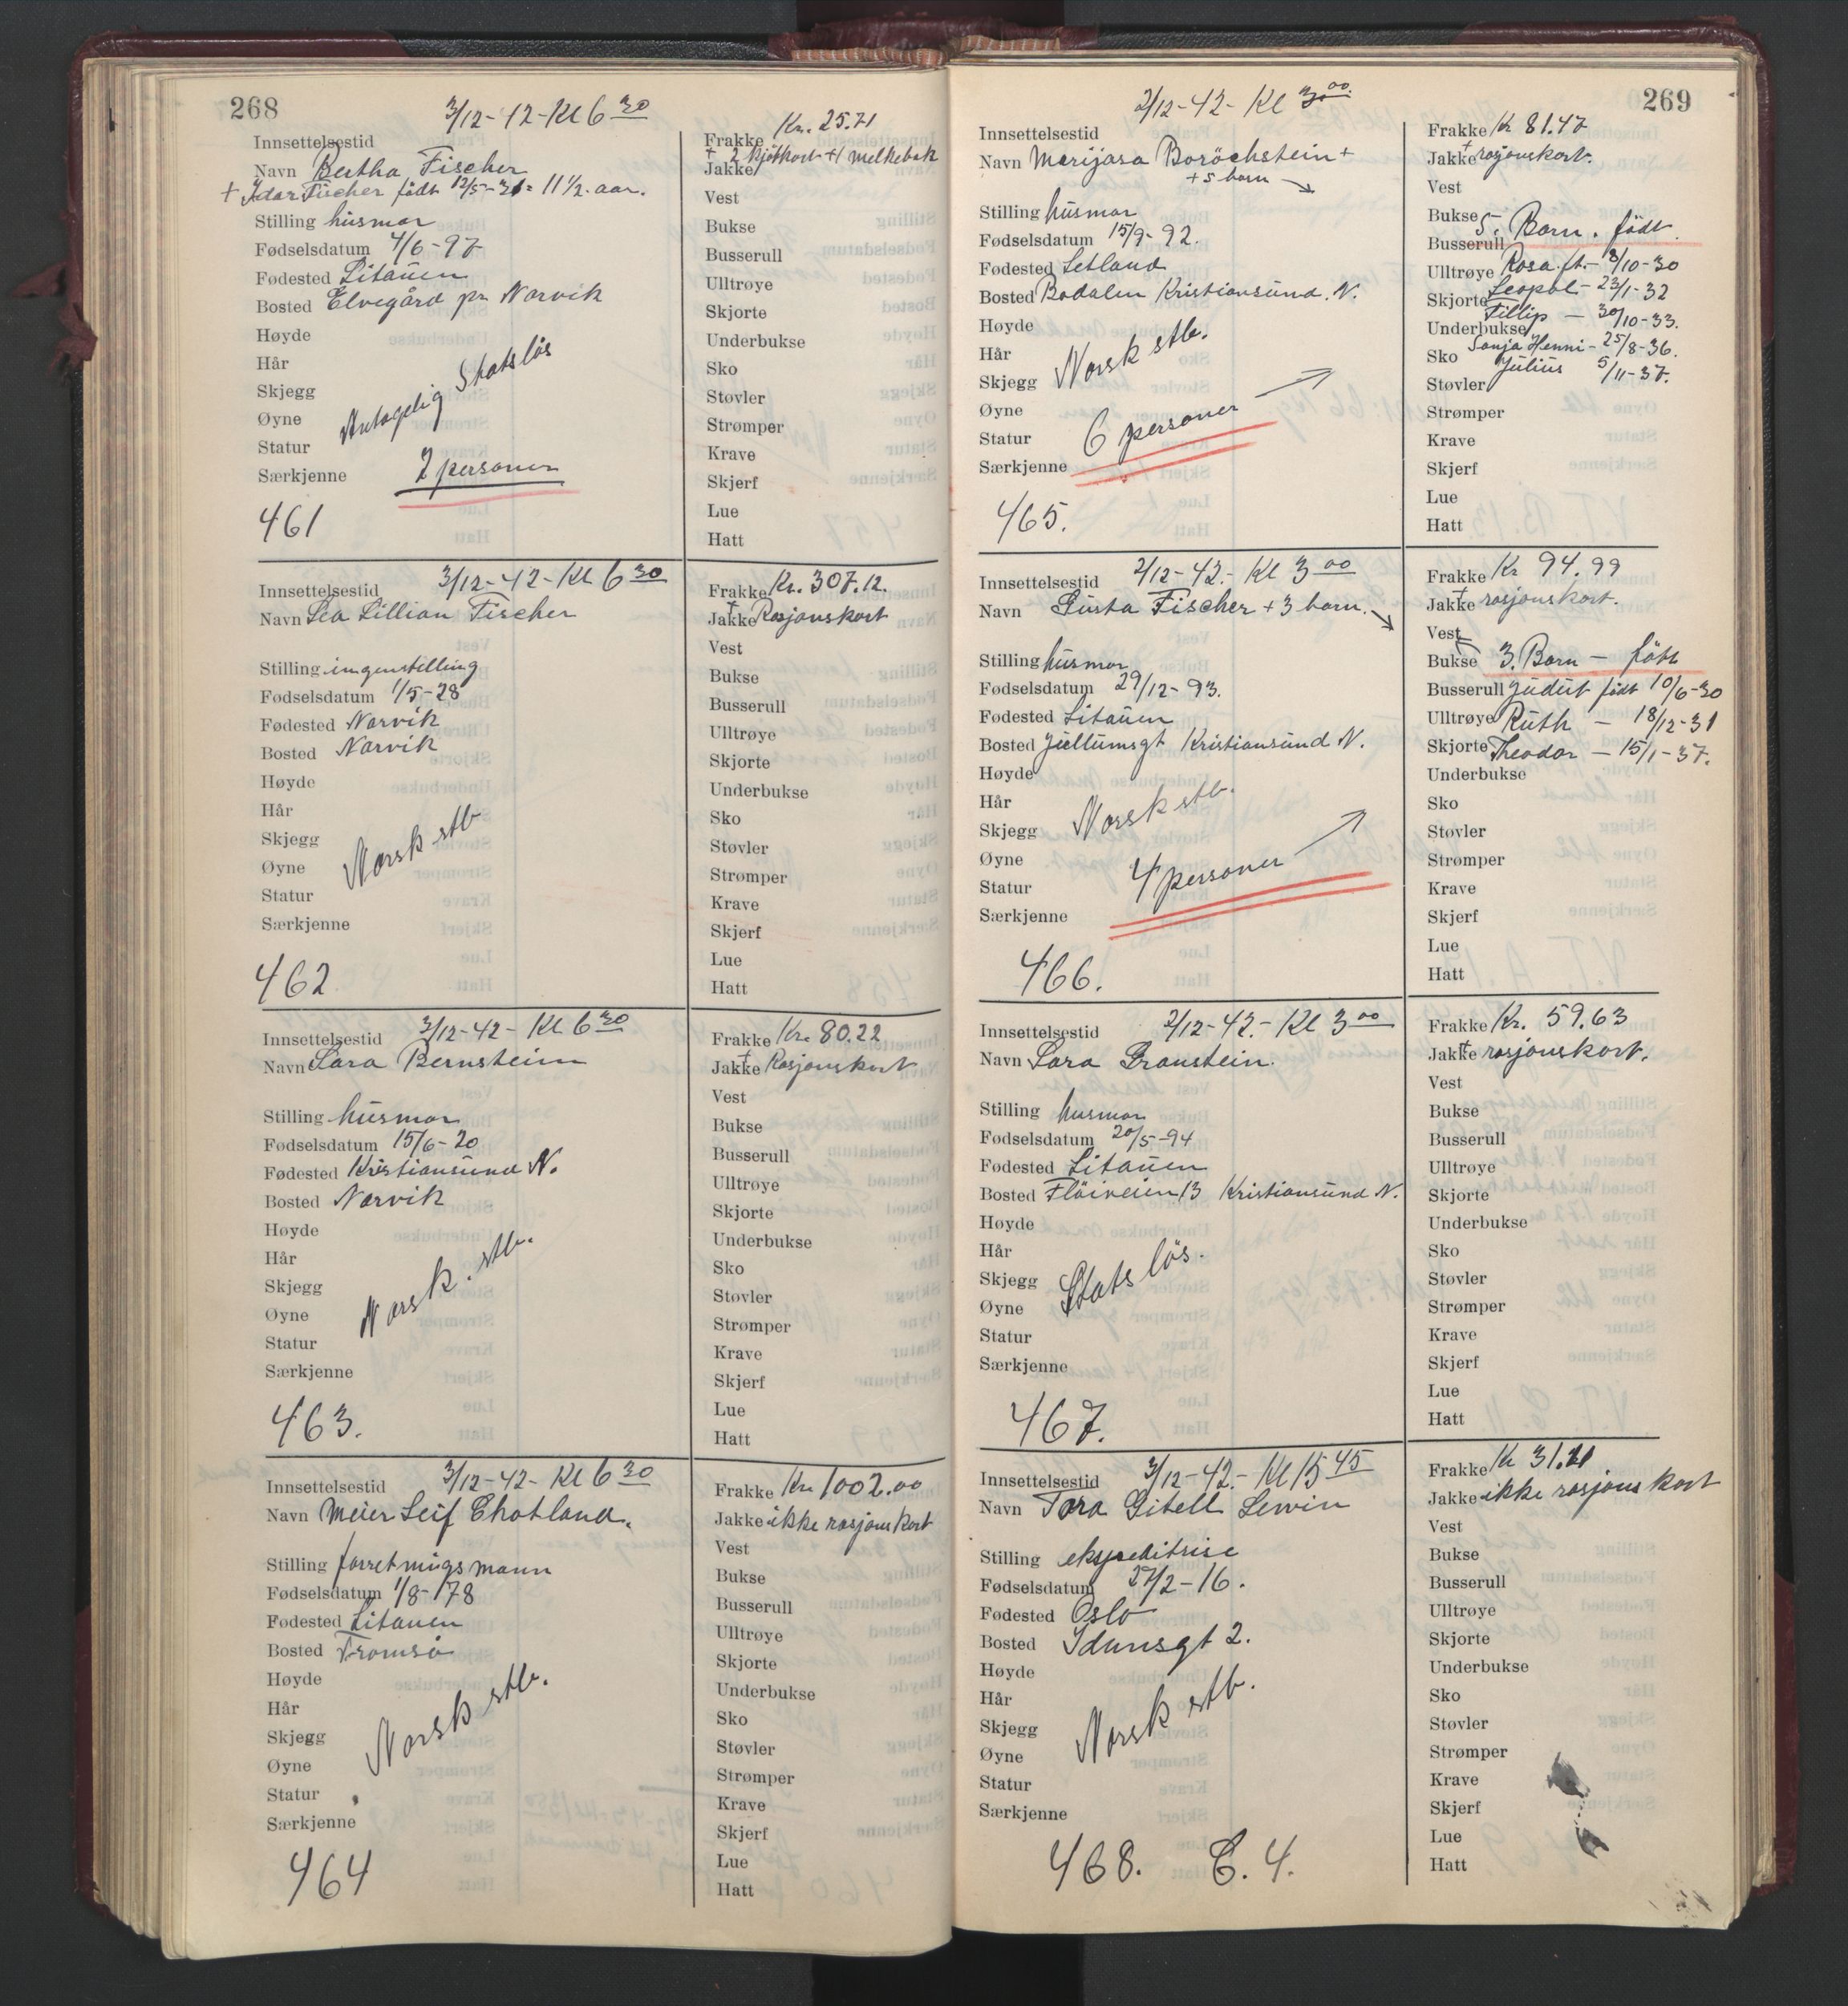 268
3/12-42-Kl 6 30
Innsettelsestid
Navn Bertha Fischer
+ Idar Fischer født 12/5-31= 11 1/2 aar.
Stilling husmor
Fødselsdatum 4/6-97
Fødested Litauen
Bosted Elvegård pr Narvik
Høyde
Hår
Skjegg
Øyne
Antagelig Statsløs
Statur
Særkjenne 2 personer
461
Frakke Kr. 25.71
+ 2 kjøtkort +1 melkebok
Jakke
Vest
Bukse
Busserull
Ulltrøye
Skjorte
Underbukse
Sko
Støvler
Strømper
Krave
Skjerf
Lue
Hatt
Innsettelsestid 3/12-42-Kl 6 30
Navn Lea Lillian Fischer
Stilling ingenstelling
Fødselsdatum 1/5-28
Fødested Narvik
Bosted Narvik
Høyde
Hår
Skjegg
Øyne Norsk stb
Statur
Særkjenne
462
Frakke Kr. 307.12.
Jakke + Rasjonskort
Vest
Bukse
Busserull
Ulltrøye
Skjorte
Underbukse
Sko
Støvler
Strømper
Krave
Skjerf
Lue
Hatt
Innsettelsestid 3/12-42- Kl 6 30
Navn Sara Bernstein
Stilling husmor
Fødselsdatum 15/6-20
Fødested Kristiansund N.
Bosted Narvik
Høyde
Hår
Skjegg
Øyne Norsk. stb.
Statur
Særkjenne
463.
Frakke Kr. 80.22
Jakke + Rasjonskort
Vest
Bukse
Busserull
Ulltrøye
Skjorte
Underbukse
Sko
Støvler
Strømper
Krave
Skjerf
Lue
Hatt
Innsettelsestid 3/12-42- Kl 6 30
Navn Meier Leif Shotland.
Stilling forretningsmann
Fødselsdatum 1/8-178
Fødested Litauen
Bosted Tromsø
Høyde
Hår
Skjegg Norsk stb.
Øyne
Statur
Særkjenne
464
Frakke Kr. 1002.00
Jakke ikke rasjonskort
Vest
Bukse
Busserull
Ulltrøye
Skjorte
Underbukse
Sko
Støvler
Strømper
Krave
Skjerf
Lue
Hatt
269
2/12-42- Kl 3.00.
Innsettelsestid
Navn Marijasa Boröchstein +
+ 5 barn
Stilling husmor
Fødselsdatum 15/9-92.
Fødested Letland
Bosted Bodalen Kristiansund. N.
Høyde
Hår
Skjegg Norsk stb.
Øyne
Statur 6 personer
Særkjenne
465.
Frakke Kr 81.47
Jakke + rasjonskort.
Vest
Bukse
5. Barn. født.
Busserull
Ulltrøye Rosa ft.- 8/10-30
Leopol - 23/1-32
Skjorte
Fillip - 30/10-33.
Underbukse
Sonja Henni - 25/8-36.
Sko
Julius 5/11-37.
Støvler
Strømper
Krave
Skjerf
Lue
Hatt
Innsettelsestid 2/12-42.- Kl 3 00
Navn Gusta Fischer + 3 barn.
Stilling husmor
Fødselsdatum 29/12-93.
Fødested Litauen
Bosted Jullumsgt Kristiansund N.
Høyde
Hår
Skjegg Norsk stb.
Øyne
Statur 4 personer
Særkjenne
466.
Frakke Kr 94.99
Jakke + rasjonskort.
Vest
Bukse 3. Barn - født
Busserull Judit født 10/6-30
Ulltrøye Ruth - 18/12-31
Skjorte Theodor - 15/1-37.
Underbukse
Sko
Støvler
Strømper
Krave
Skjerf
Lue
Hatt
Innsettelsestid 2/12-42.- Kl 3 00
Navn Sara Granstein.
Stilling husmor
Fødselsdatum 20/5-94
Fødested Litauen
Bosted Fløiveien 13 Kristiansund N.
Høyde
Hår
Skjegg Statsløs.
Øyne
Statur
Særkjenne
467.
Frakke Kr. 59.63
Jakke + rasjonskort.
Vest
Bukse
Busserull
Ulltrøye
Skjorte
Underbukse
Sko
Støvler
Strømper
Krave
Skjerf
Lue
Hatt
Innsettelsestid 3/12-42.- Kl 15 45
Navn Tora Gitell Lewin
Stilling ekspeditrise
Fødselsdatum 27/2-16.
Fødested Oslo
Bosted Idunsgt 2.
Høyde
Hår
Skjegg Norsk stb.
Øyne
Statur
Særkjenne
468. C. 4.
Frakke Kr 31.21
Jakke ikke rasjonskort
Vest
Bukse
Busserull
Ulltrøye
Skjorte
Underbukse
Sko
Støvler
Strømper
Krave
Skjerf
Lue
Hatt